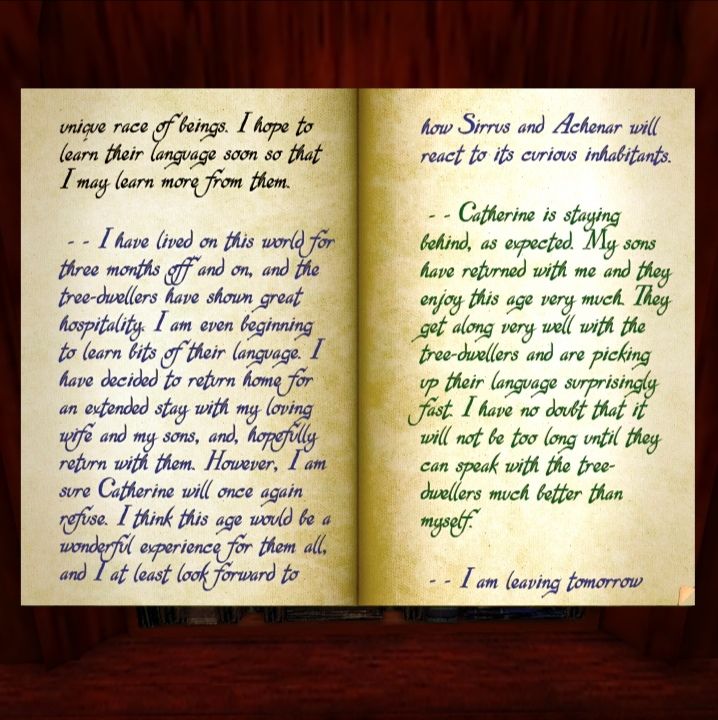 unique race of beings. I hope to
learn their language soon so that
I may learn more from them.
-- I have lived on this world for
three months off and on, and the
tree-dwellers have shown great
hospitality. I am even beginning
to learn bits of their language. I
have decided to return home for
an extended stay with my loving
wife and my sons, and, hopefully
return with them. However, I am
sure Catherine will once again
refuse. I think this age would be a
wonderful experience for them all,
and I at least look forward to
how Sirrus and Achenar will
react to its curious inhabitants.
-- Catherine is staying
behind, as expected. My sons
have returned with me and they
enjoy this age very much. They
get along very well with the
tree-dwellers and are picking
up their language surprisingly
fast. I have no doubt that it
will not be too long until they
can speak with the tree-
dwellers much better than
myself.
-- I am leaving tomorrow